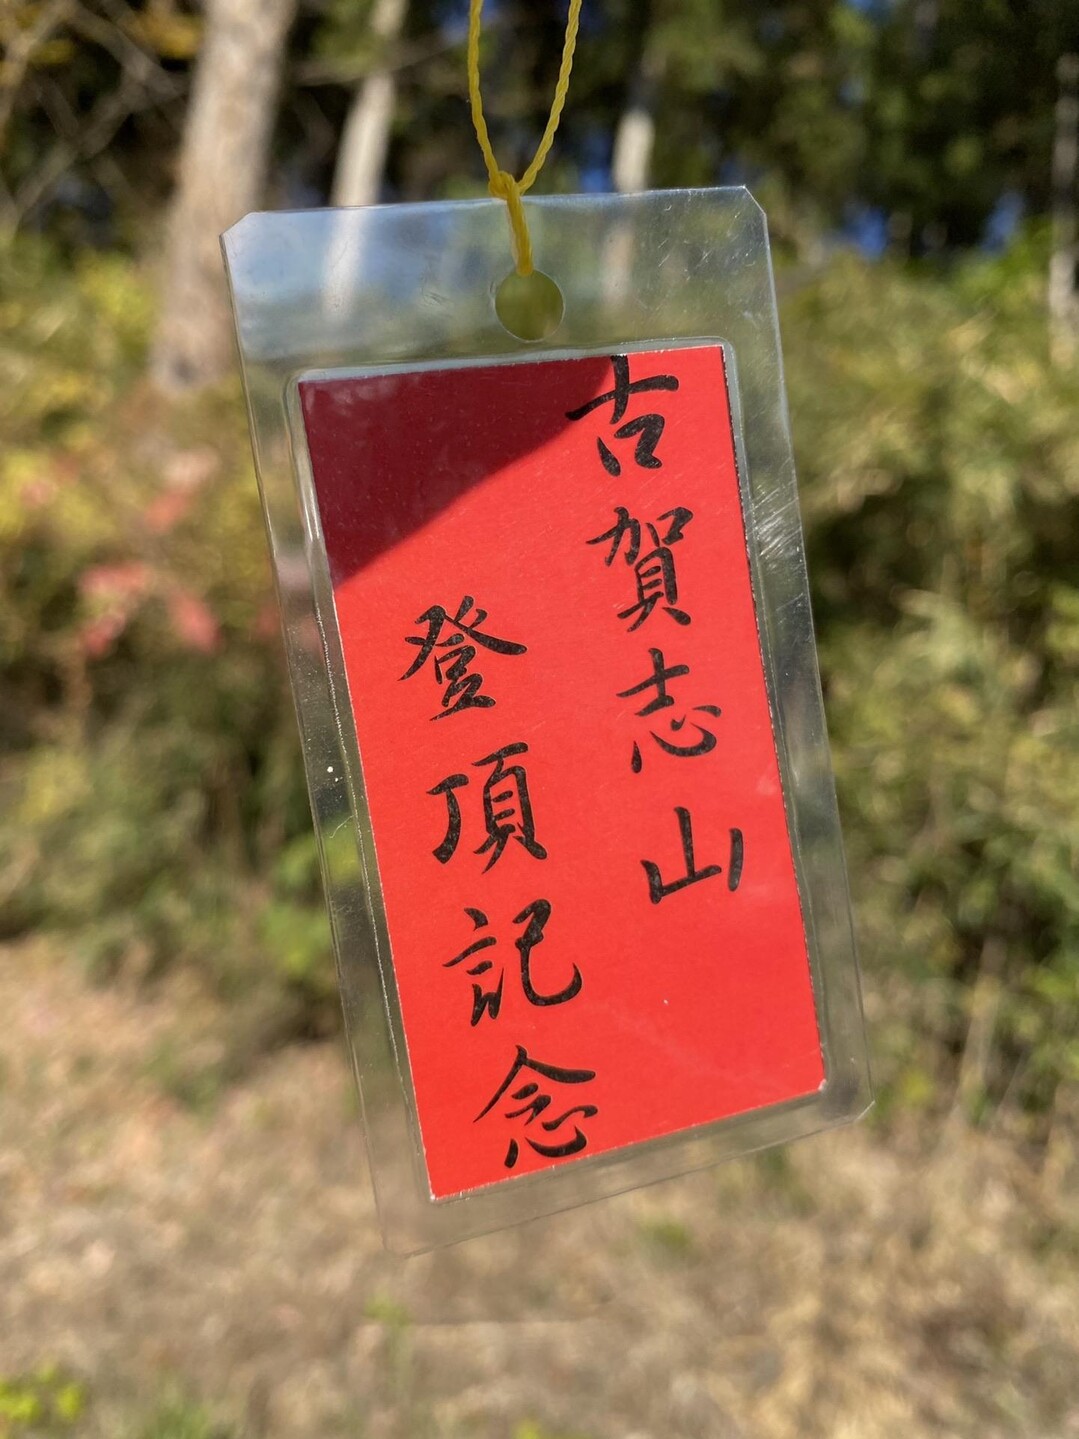 古賀志山
登頂記念